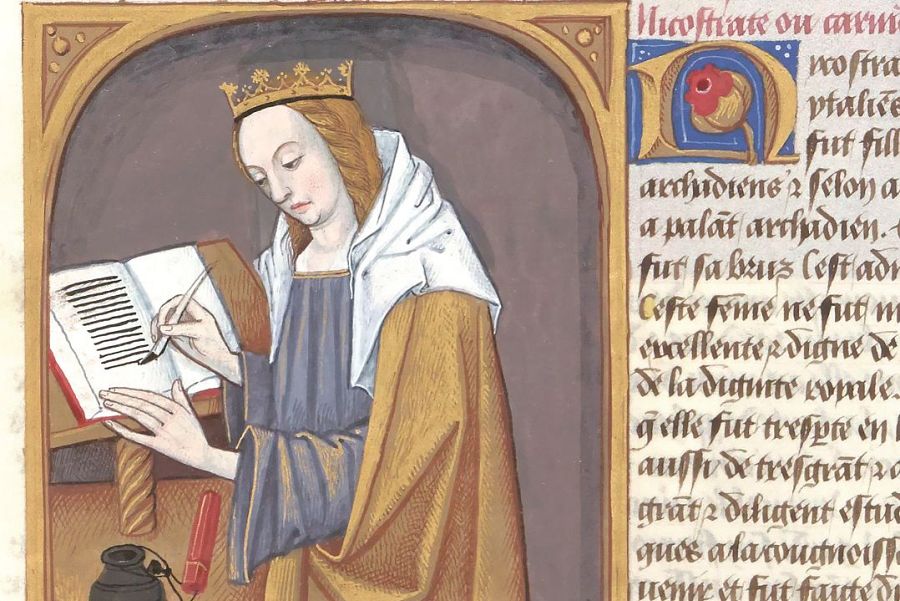 Nicostrate ou carm
Nicostra
ytaliẽs
fut fill
archadiens ⁊ selon a
a palãt archadien.
fut sa bruz Cest adu
Ceste feme ne fut m
excellente ⁊ digne de
de la dignite royale
q̃lle fut tresp̱te en l
aussi de tresgrãt ⁊ a
grãt ⁊ diligent estud
ques a la cougnoiss
venir et fut faicte du